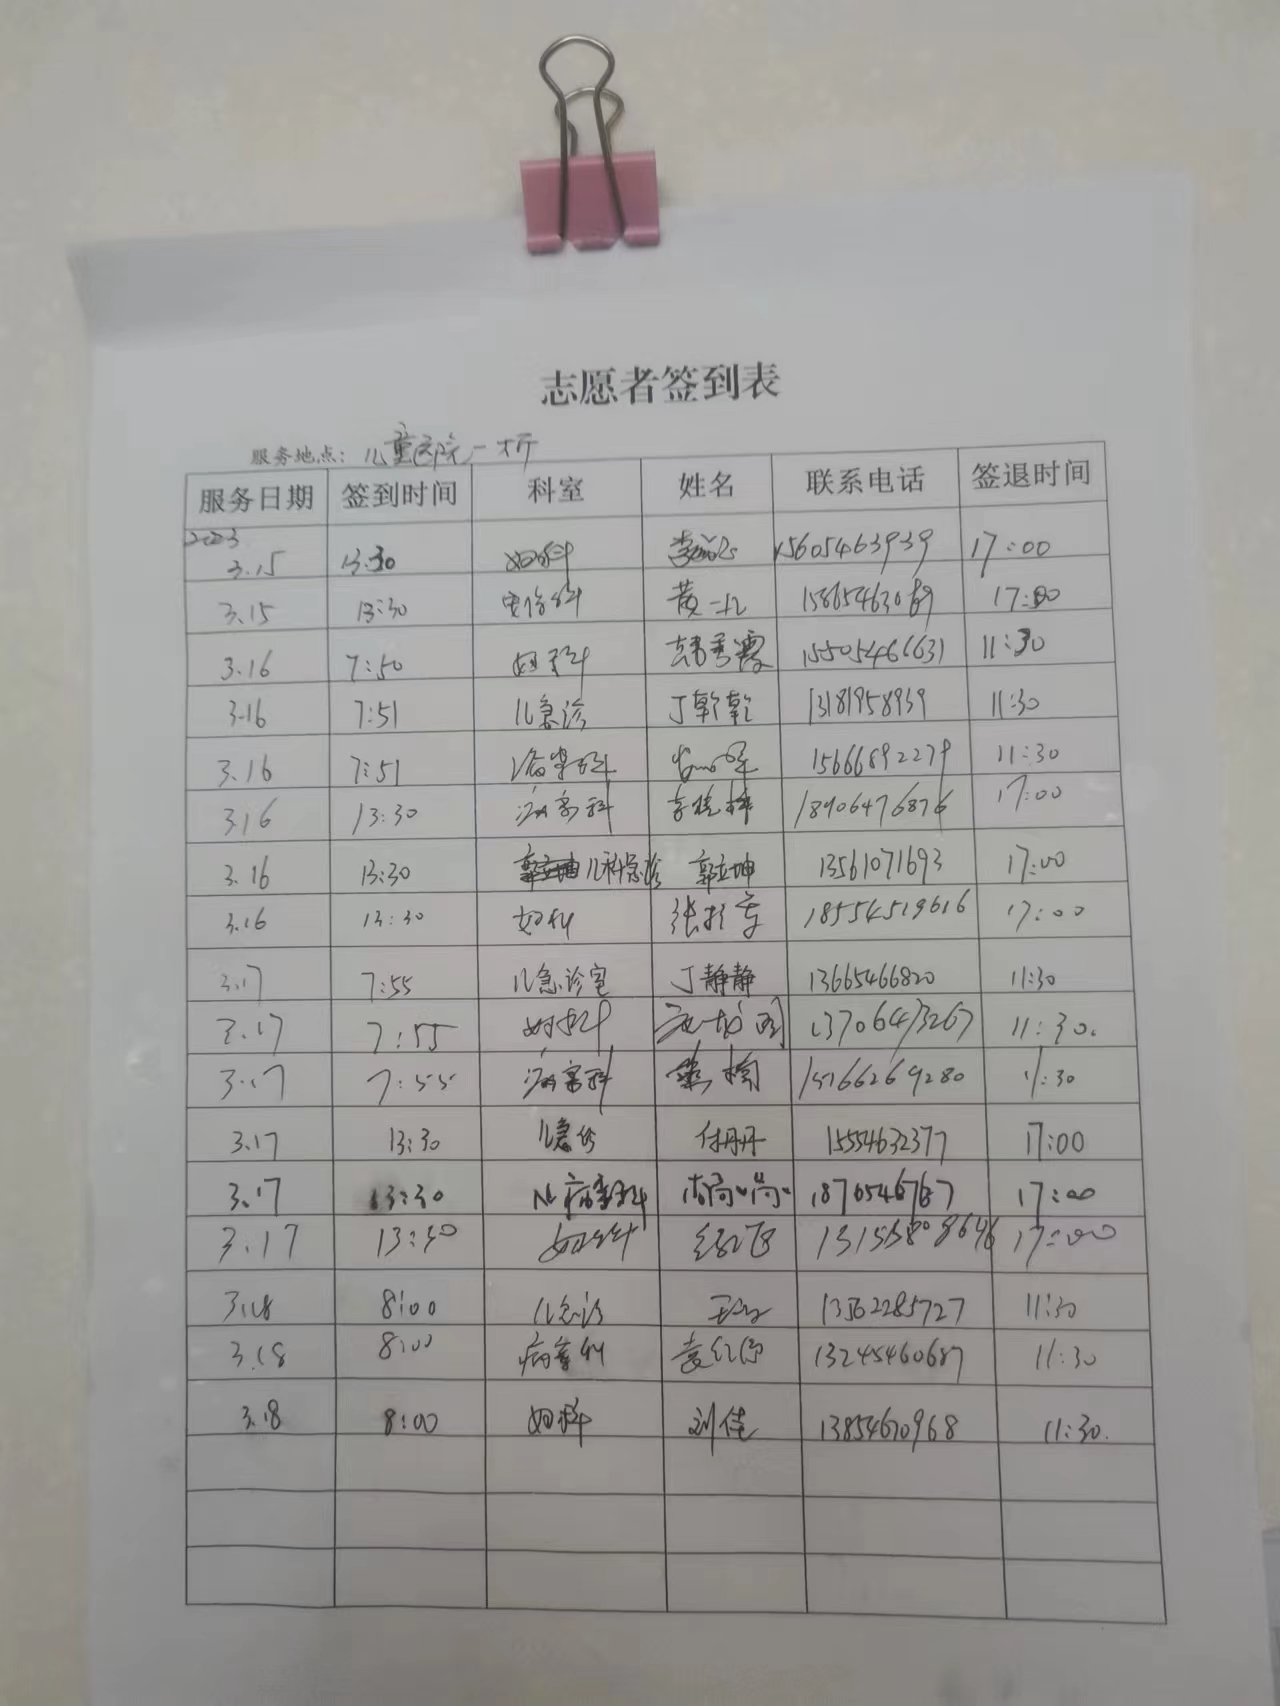 志愿者签到表
服务地点：儿童医院一
服务日期 签到时间 科室 姓名 联系电话 签退时间
2023
3.15 13:30 妇科 15605463939 17:00
3.15 13:30 黄 17:00
3.16 7:50 妇科 韩秀霞 15505466631 11:30
3.16 7:51 儿急诊 丁乾乾 13181958939 11:30
3.16 7:51 病案科 15666892279 11:30
3.16 13:30 病案科 李晓梅 18906476876 17:00
3.16 13:30 儿科急诊 郭立坤 13561071693 17:00
3.16 13:30 妇科 张 18554519616 17:00
3.17 7:55 儿急诊室 丁静静 13665466820 11:30
3.17 7:55 妇科 13706473267 11:30.
3.17 7:55 病案科 15166269280 11:30
3.17 13:30 儿急诊 付丹丹 15554632377 17:00
3.17 13:30 病案科 17:00
3.17 13:30 妇科 17:00
3.18 8:00 儿急诊 13562285727 11:30
3.18 8:00 病案科 袁红伟 13245460687 11:30
3.18 8:00 妇科 刘佳 13854670968 11:30.